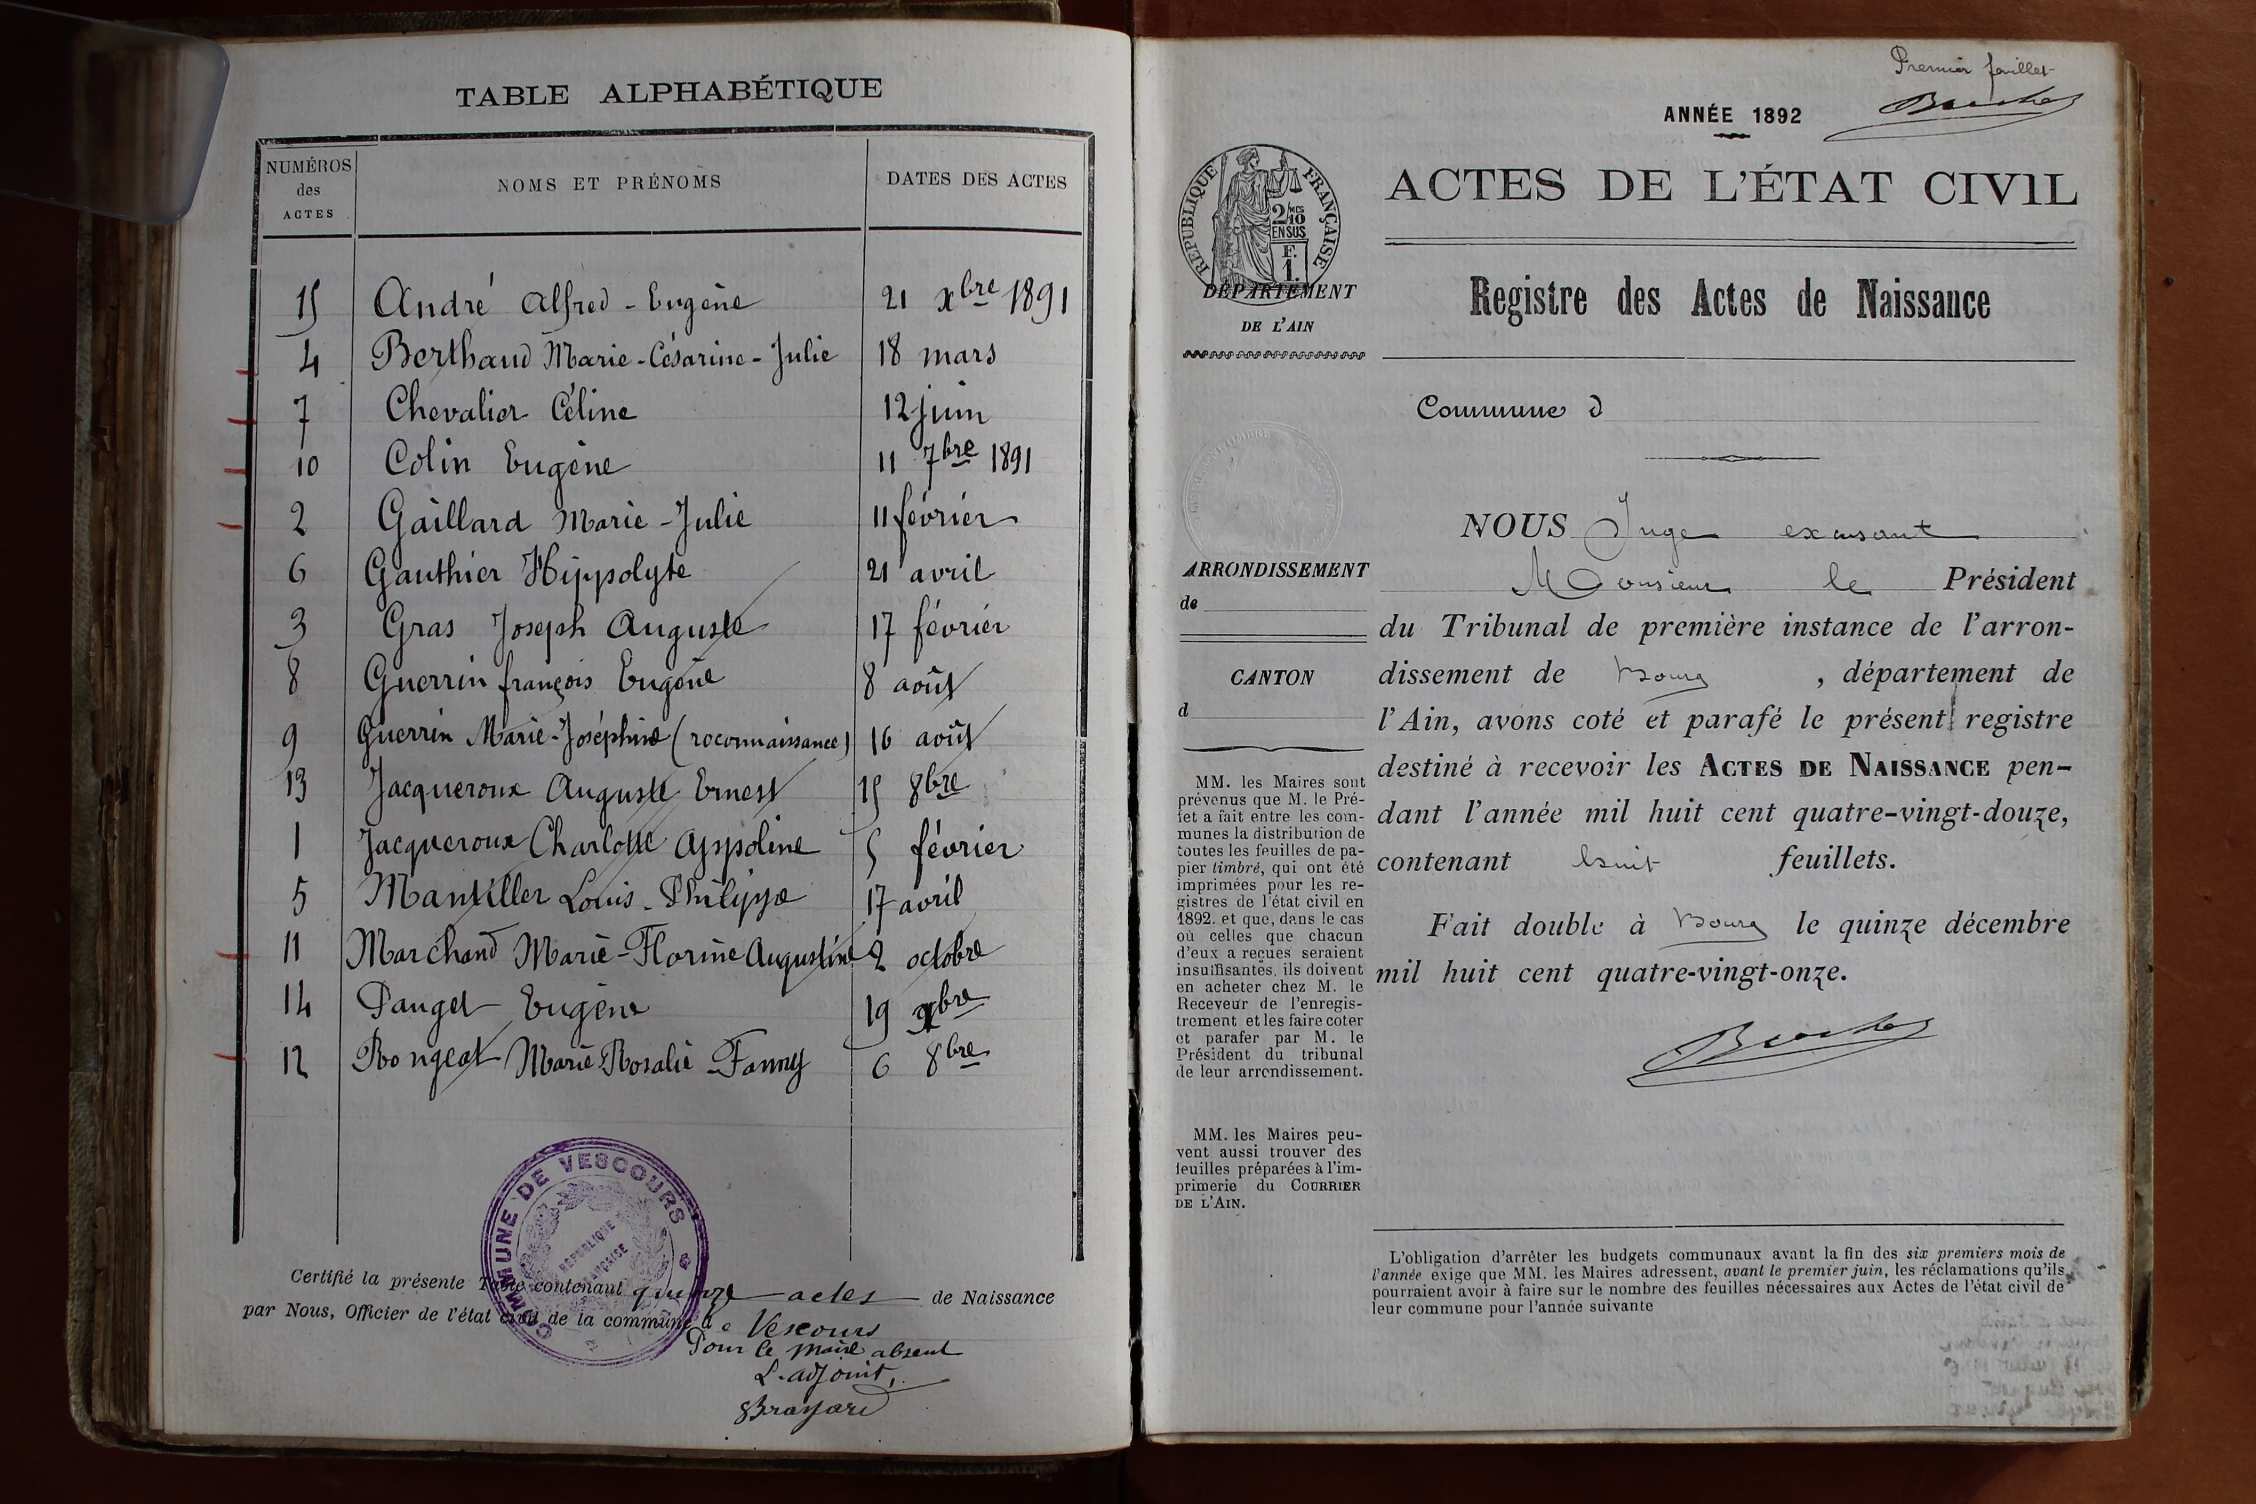 TABLE ALPHABÉTIQUE
NUMÉROS des ACTES
NOMS ET PRÉNOMS
DATES DES ACTES
15 André Alfred - Eugène 21 xbre 1891
4 Berthaud Marie-Césarine-Julie 18 mars
7 Chevalier Céline 12 juin
10 Colin Eugène 11 7bre 1891
2 Gaillard Marie-Julie 11 février
6 Gauthier Hippolyte 21 avril
3 Gras Joseph Auguste 17 février
8 Guerrin françois Eugène 8 août
9 Guerrin Marie-Joséphine (reconnaissance) 16 août
13 Jacqueroux Auguste Ernest 15 8bre
1 Jacqueroux Charlotte Appoline 5 février
5 Mantiller Louis-Philippe 17 avril
11 Marchand Marie-Florine Augustine 2 octobre
14 Panget Eugène 19 xbre
12 Rongeat Marie Rosalie Fanny 6 8bre
COMMUNE DE VESCOURS
RÉPUBLIQUE FRANÇAISE
Certifié la présente Table contenant quinze actes de Naissance
par Nous, Officier de l'état civil de la commune de Vescours
Pour le maire absent
L'adjoint,
Premier feuillet
ANNÉE 1892
RÉPUBLIQUE FRANÇAISE
2/10 MES
EN SUS
F.
1.
ACTES DE L'ÉTAT CIVIL
DÉPARTEMENT
DE L'AIN
Registre des Actes de Naissance
Commune d
NOUS Juge excusant
Monsieur le Président
du Tribunal de première instance de l'arron-
dissement de Bourg, département de
l'Ain, avons coté et parafé le présent registre
destiné à recevoir les ACTES DE NAISSANCE pen-
dant l'année mil huit cent quatre-vingt-douze,
contenant huit feuillets.
Fait double à Bourg le quinze décembre
mil huit cent quatre-vingt-onze.
ARRONDISSEMENT
de
CANTON
d
MM. les Maires sont
prévenus que M. le Pré-
fet a fait entre les com-
munes la distribution de
toutes les feuilles de pa-
pier timbré, qui ont été
imprimées pour les re-
gistres de l'état civil en
1892. et que, dans le cas
où celles que chacun
d'eux a reçues seraient
insuffisantes, ils doivent
en acheter chez M. le
Receveur de l'enregis-
trement et les faire coter
et parafer par M. le
Président du tribunal
de leur arrondissement.
MM. les Maires peu-
vent aussi trouver des
feuilles préparées à l'im-
primerie du COURRIER
DE L'AIN.
L'obligation d'arrêter les budgets communaux avant la fin des six premiers mois de
l'année exige que MM. les Maires adressent, avant le premier juin, les réclamations qu'ils
pourraient avoir à faire sur le nombre des feuilles nécessaires aux Actes de l'état civil de
leur commune pour l'année suivante